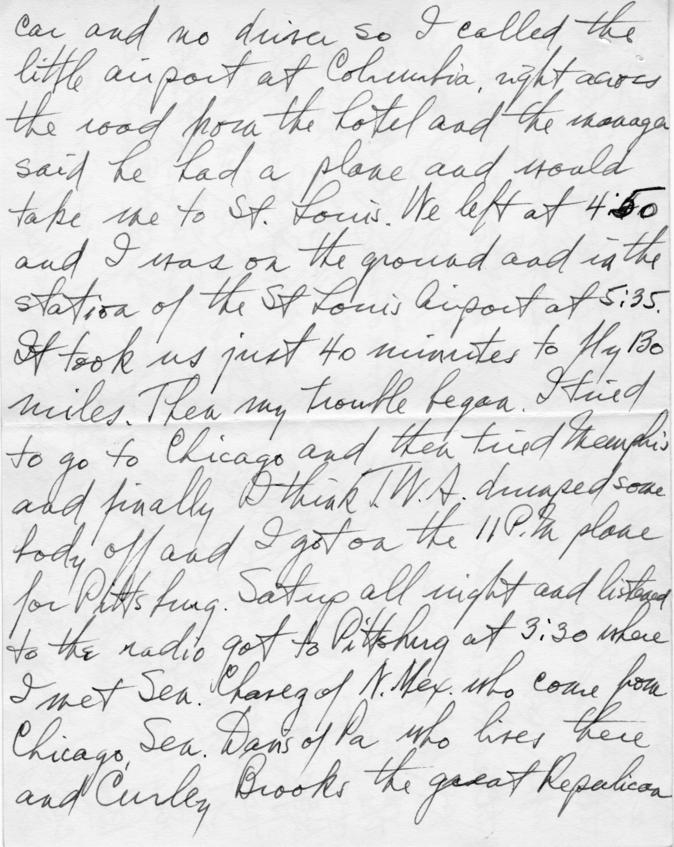 car and no driver so I called the
little airport at Columbia, right across
the road from the hotel and the manager
said he had a plane and would
take me to St. Louis. We left at 4:50
and I was on the ground and in the
station of the St Louis Airport at 5:35.
It took us just 40 minutes to fly 130
miles. Then my trouble began. I tried
to go to Chicago and then tried Memphis
and finally I think T.W.A. dumped some
body off and I got on the 11 P.M plane
for Pittsburg. Sat up all night and listened
to the radio got to Pittsburg at 3:30 where
I met Sen. Chavez of N. Mex. who come from
Chicago, Sen. Davis of Pa who lives there
and Curley Brooks the great Repulican